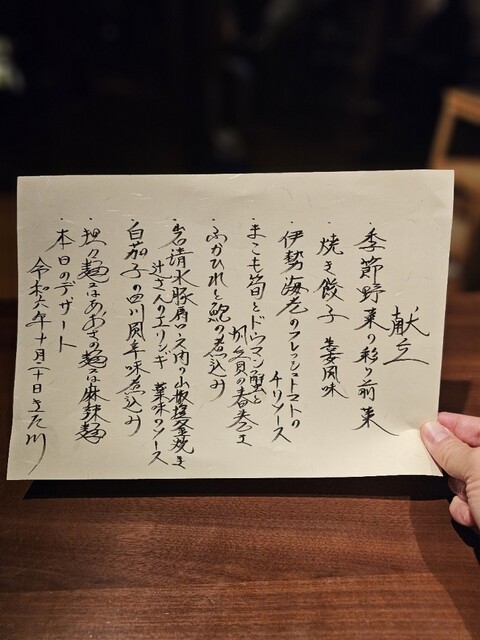 献立
季節野菜の彩り前菜
・焼き餃子 生姜風味
・伊勢海老のフレッシュトマトの
チリソース
・まこも筍とドウマン蟹と
帆立貝の春巻き
・ふかひれと鮑の煮込み
・岩清水豚肩ロース肉の山椒塩釜焼き
辻さんのエリンギ 葉味のソース
・白茄子の四川風辛味煮込み
・担々麺又はあおさの麺又は麻辣麺
・本日のデザート
令和六年十月二十日 きた川